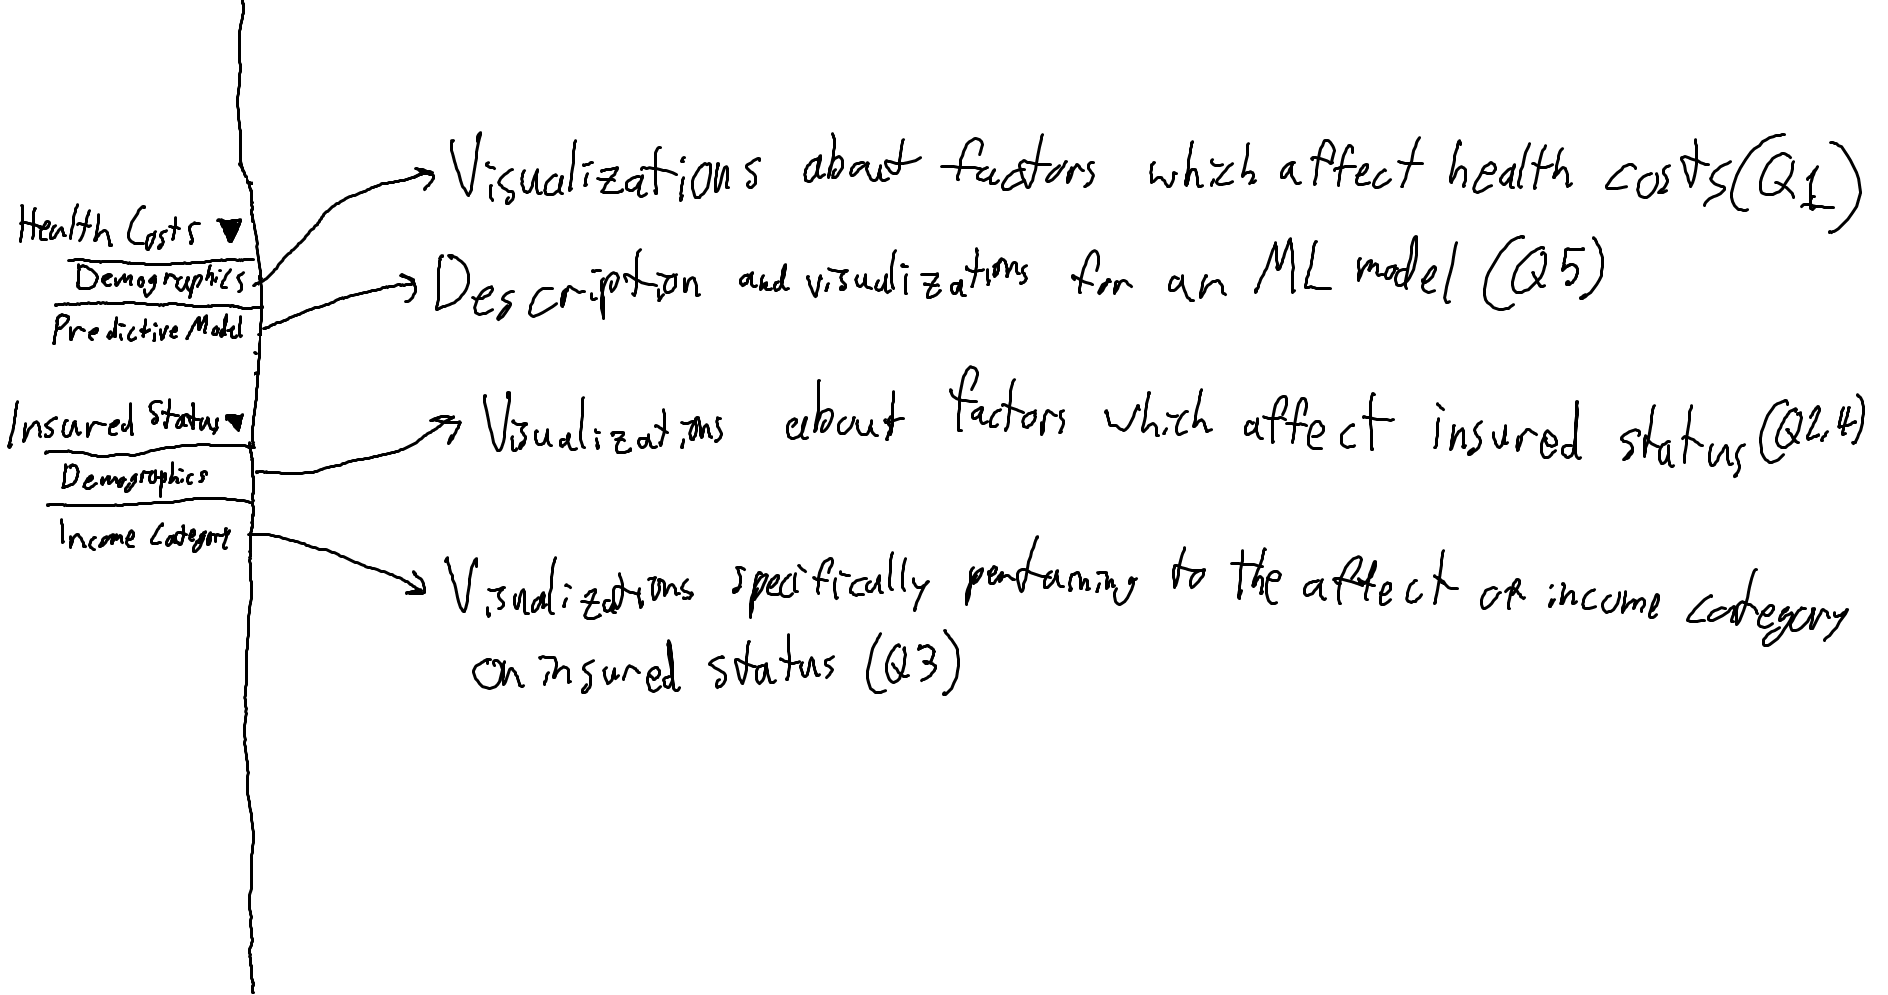 Health Costs ▼
Demographics
Predictive Model
Insured Status ▼
Demographics
Income Category
Visualizations about factors which affect health costs (Q1)
Description and visualizations for an ML model (Q5)
Visualizations about factors which affect insured status (Q2,4)
Visualizations specifically pertaining to the affect of income category
on insured status (Q3)